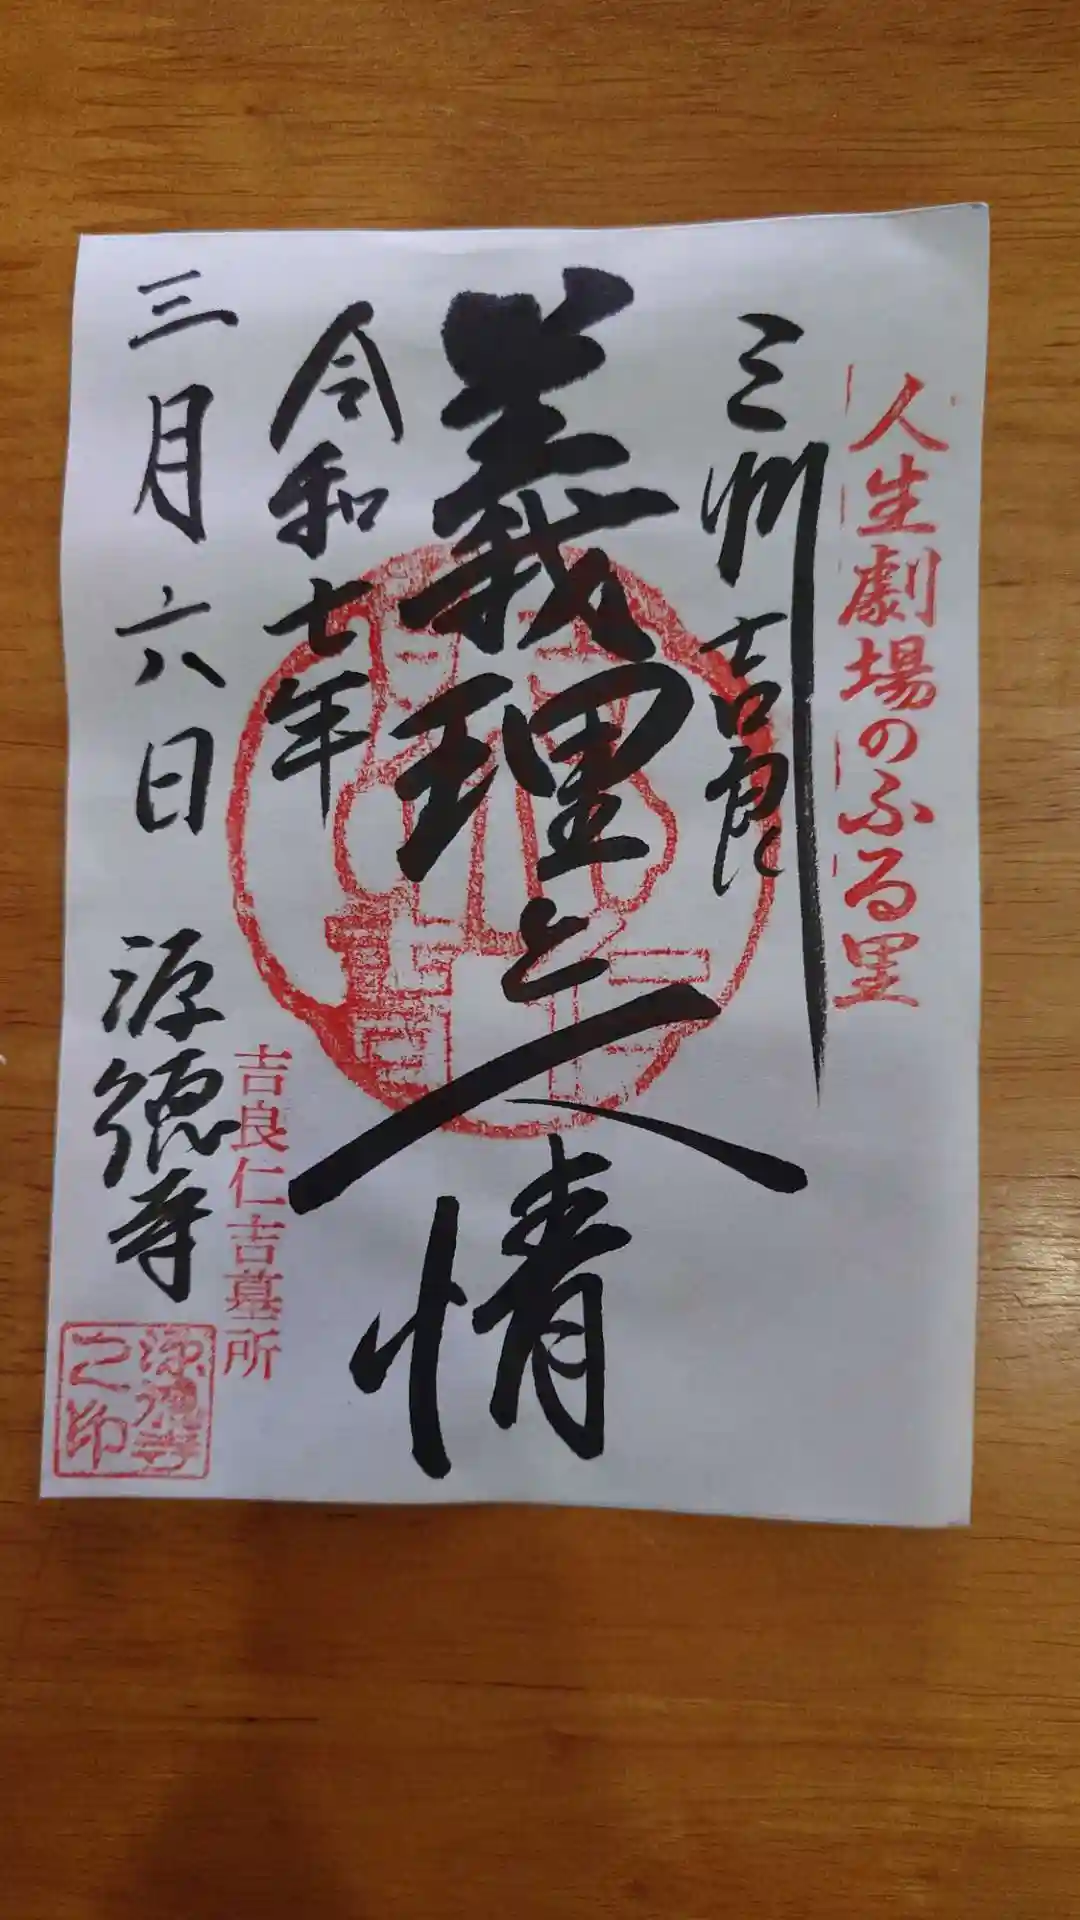 人生劇場のふる里
三州吉良
義理と人情
令和七年
三月六日
吉良仁吉墓所
源徳寺
源徳寺
之印